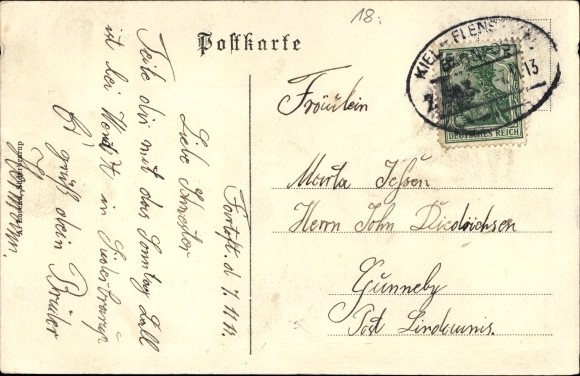 18.
Postkarte
KIEL - FLENS
DEUTSCHES REICH
13
Fräulein
Marta Jessen
Herrn John Diedrichsen
Gunneby
Post Lindaunis.
d. 7.11.11.
Liebe Schwester
Teile dir mit das Sonntag Ball
ist bei in Süderbrarup
Es grüßt dein Bruder
Hermann.